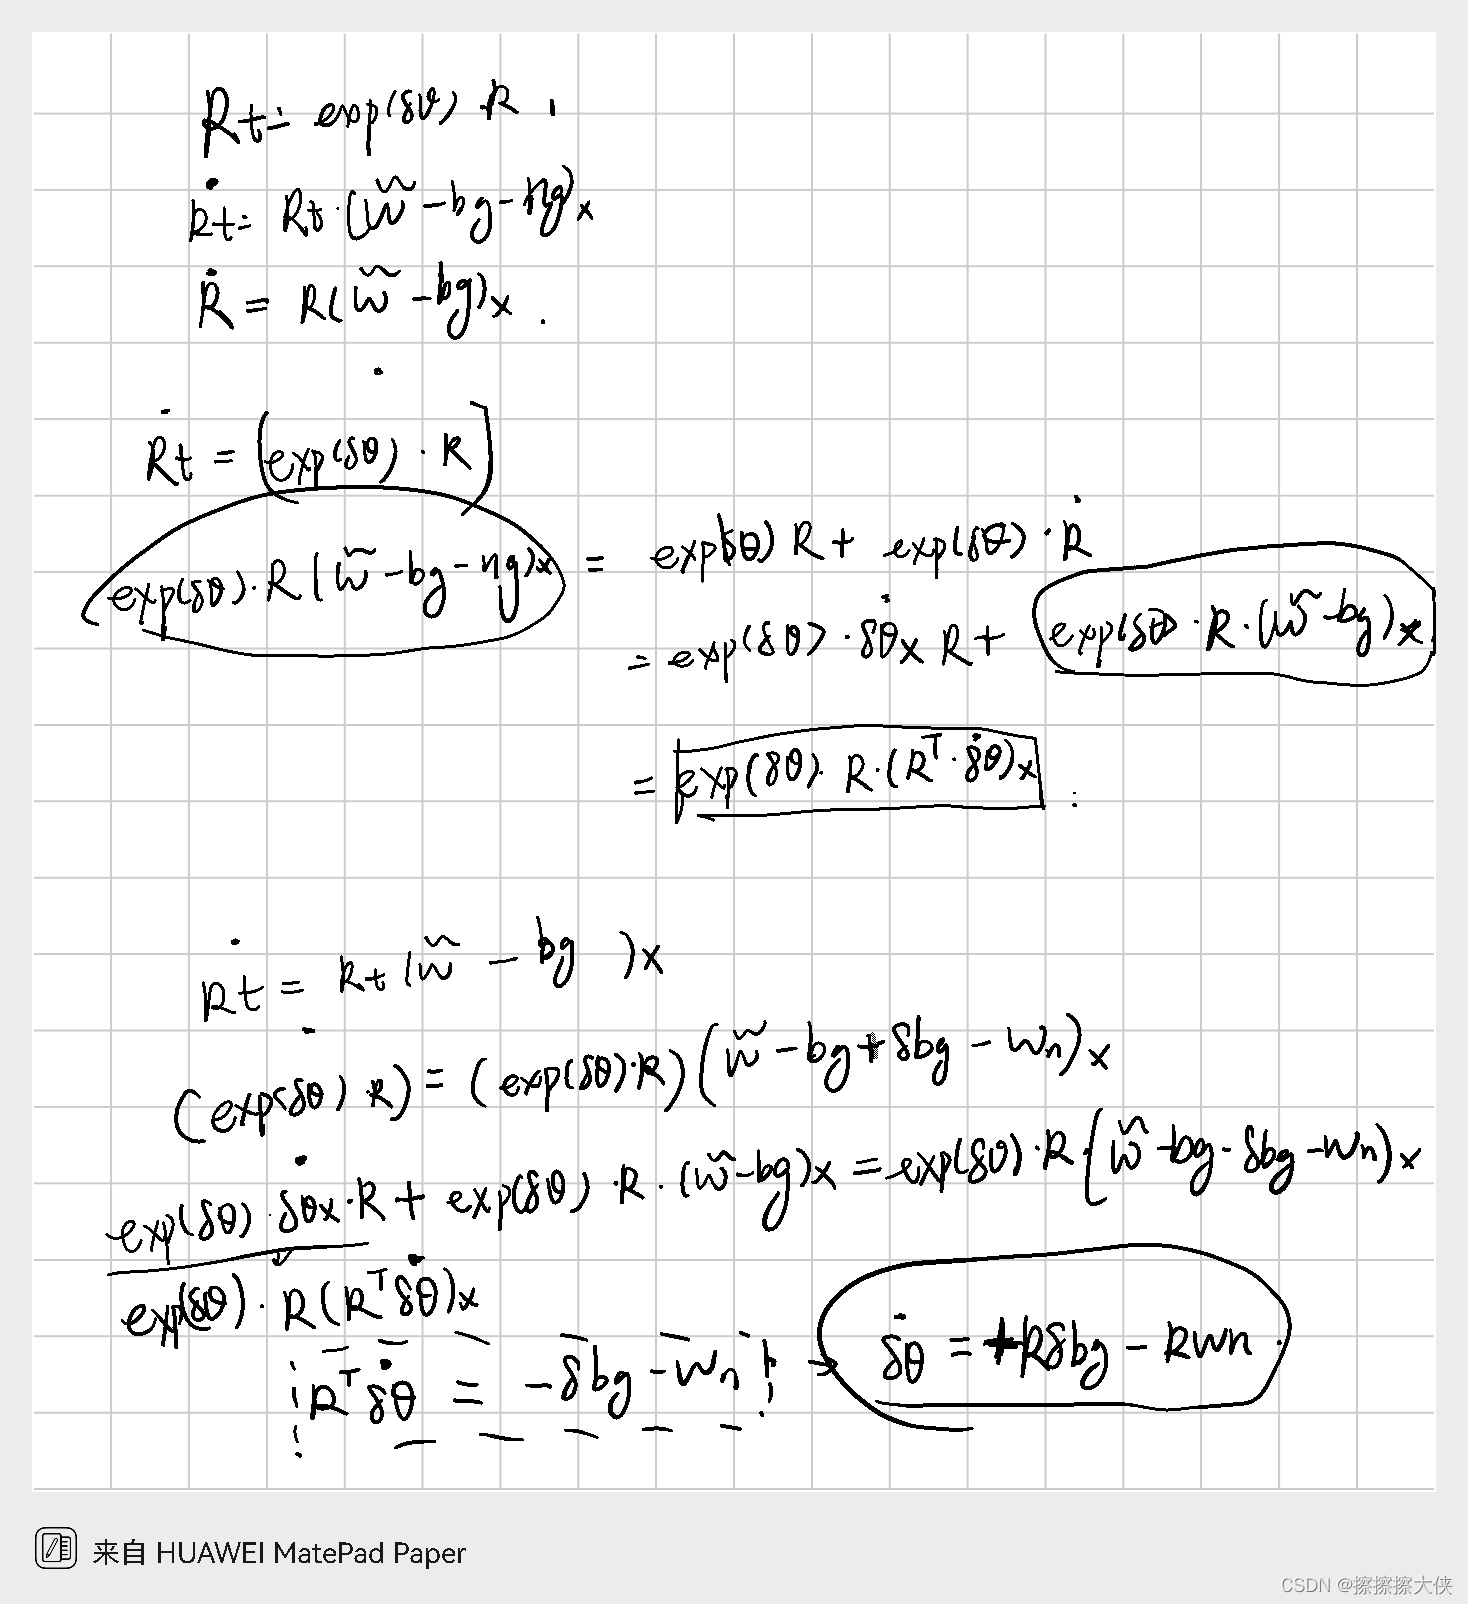 Rt = exp(δθ) · R .
Ṙt = Rt · (w̃ - bg - ηg)x
Ṙ = R(w̃ - bg)x .
Ṙt = [exp(δθ) · R]˙
exp(δθ) · R (w̃ - bg - ηg)x = exp(δθ) R + exp(δθ) · Ṙ
= exp(δθ) · δθ̇x R + exp(δθ) · R · (w̃ - bg)x
= exp(δθ) · R · (Rᵀ · δθ̇)x :
Ṙt = Rt (w̃ - bg )x
(exp(δθ) R)˙ = (exp(δθ) · R) (w̃ - bg + δbg - wn)x
exp(δθ) · δθ̇x · R + exp(δθ) · R · (w̃ - bg)x = exp(δθ) · R · (w̃ - bg - δbg - wn)x
exp(δθ) · R (Rᵀ δθ̇)x
Rᵀ δθ̇ = -δbg - wn → δθ̇ = +Rδbg - Rwn
来自 HUAWEI MatePad Paper
CSDN @擦擦擦大侠